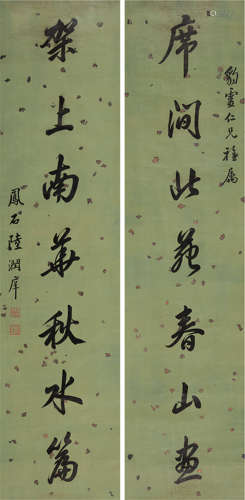 豹仁兄雅属
席間北苑春山畫
架上南華秋水篇
鳳石陸潤庠